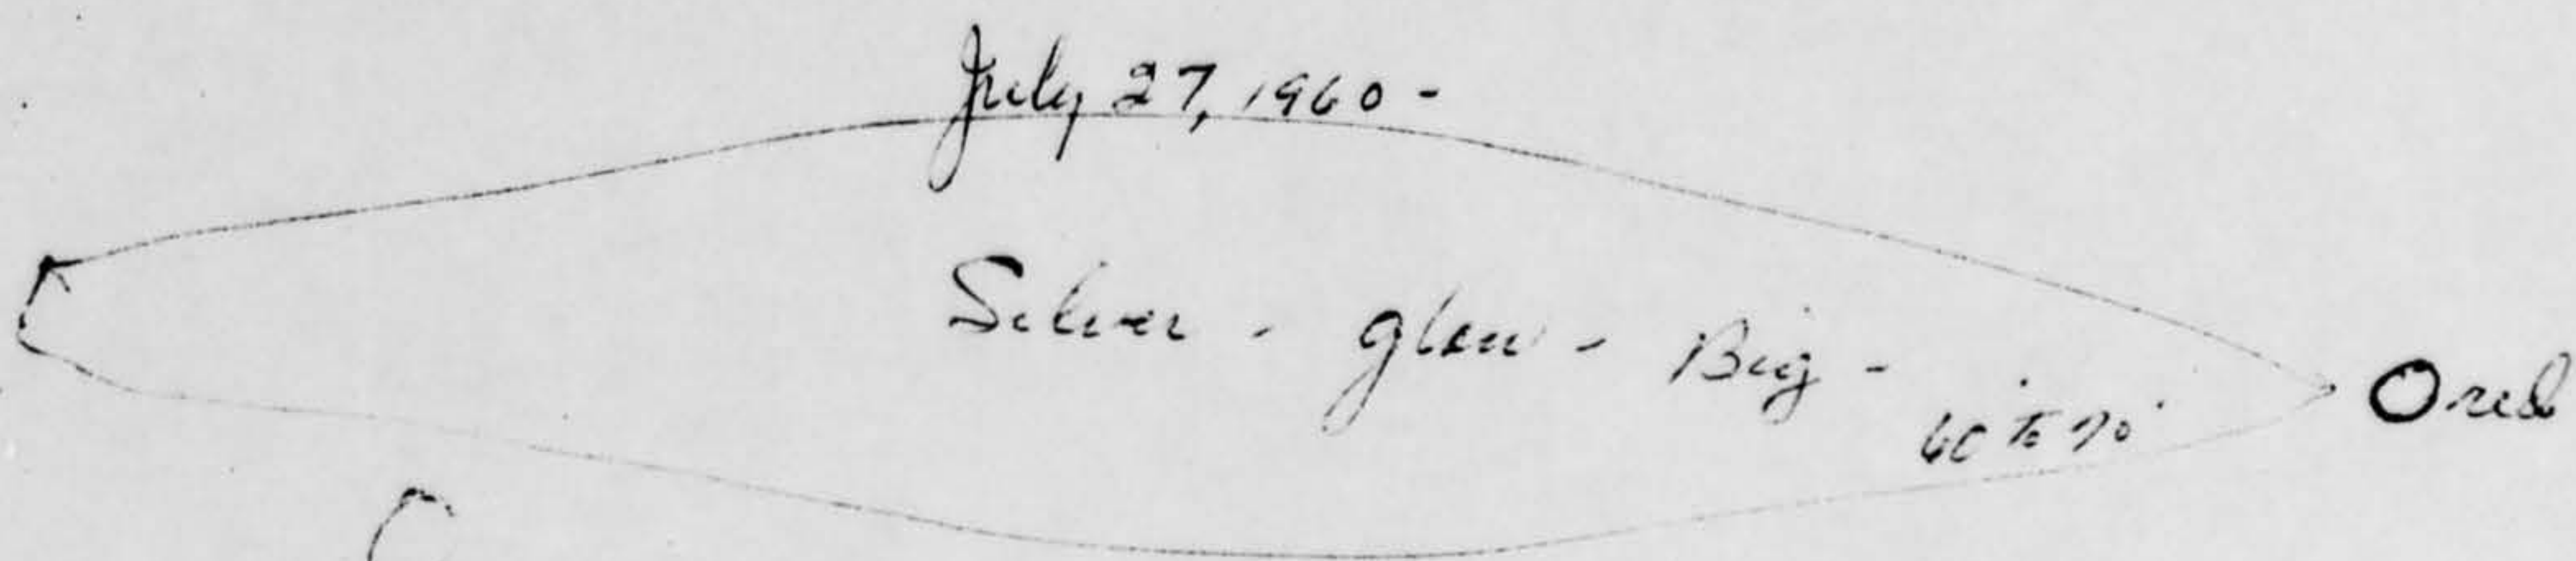 July 27, 1960 -
Silver - glow - Big -
60 to 70'
O red